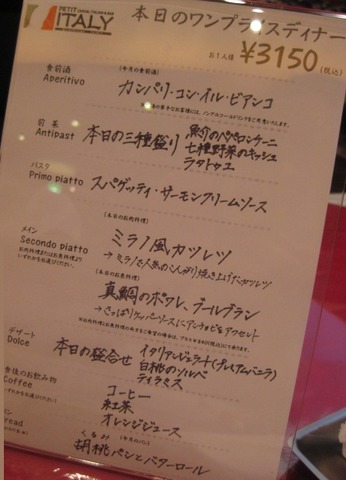 PETIT
ITALY
本日のワンプライスディナー
お1人様 ¥3150(税込)
食前酒
Aperitivo
(今月の食前酒)
カンパリ・コン・イル・ビアンコ
前菜
Antipast
本日の三種盛り
魚介のペペロンチーニ
七種野菜のキッシュ
ラタトゥユ
パスタ
Primo piatto
スパゲッティ・サーモンクリームソース
メイン
Secondo piatto
お肉料理またはお魚料理より
いずれかをお選びください。
(本日のお肉料理)
ミラノ風カツレツ
→ミラノで人気のこんがり焼き上げたカツレツ
(本日のお魚料理)
真鯛のポワレ、ブールブラン
→さっぱりケッパーソースにアンチョビをアクセント
デザート
Dolce
本日の盛合せ
イタリアンジェラート(プレミアムバニラ)
白桃のソルベ
ティラミス
食後のお飲み物
Coffee
いずれかをお選びください。
コーヒー
紅茶
オレンジジュース
パン
Bread
くるみ
(今月のパン)
胡桃パンとバターロール